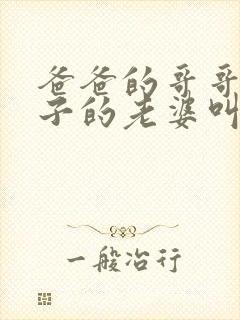 爸爸的哥哥
子的老婆叫
一般冶行